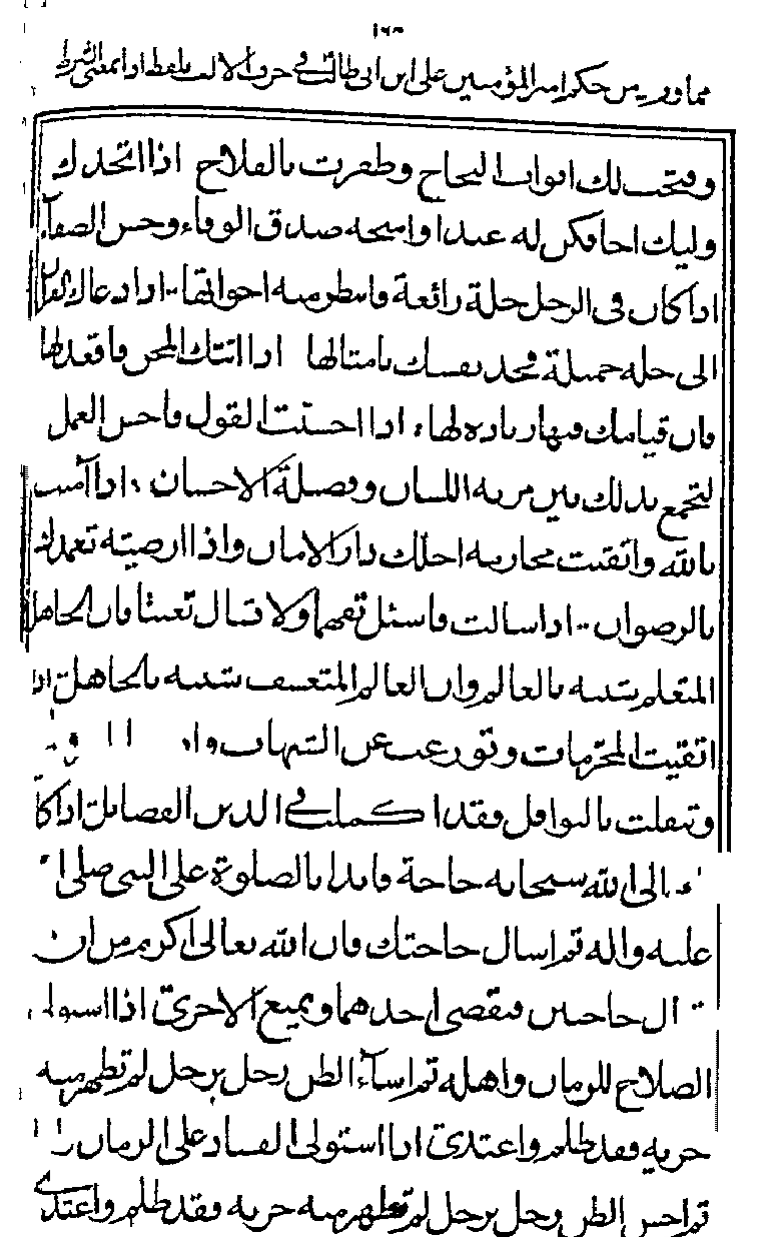 ١٦٣
مما ورد من حكم امير المؤمنين على ابن ابى طالب فى حرف الالف بلفظ اذا بمعنى الشرط
وفتحت لك ابواب النجاح وظفرت بالفلاح اذا اتخذك
وليك اخا فكن له عبدا وامنحه صدق الوفاء وحسن الصفآء
اذا كان فى الرجل خلة رائعة فانتظر منه اخواتها اذا دعاك القران
الى خلة جميلة فخذ نفسك بامثالها اذا اتتك المحن فاقعد لها
فان قيامك فيها زيادة لها اذا احسنت القول فاحسن العمل
لتجمع بذلك بين مزية اللسان وفضيلة الاحسان اذا آمنت
بالله واتقيت محارمه احلك دار الامان واذا ارضيته تغمدك
بالرضوان اذا سالت فاسئل تفهما ولا تسال تعنتا فان الجاهل
المتعلم شبيه بالعالم وان العالم المتعسف شبيه بالجاهل اذا
اتقيت المحرمات وتورعت عن الشبهات
وتنفلت بالنوافل فقد اكملت فى الدين الفضائل اذا كا
الى الله سبحانه حاجة فابدا بالصلوة على النبى صلى
عليه واله ثم اسال حاجتك فان الله تعالى اكرم من ان
حاجتين فيقضى احدهما ويمنع الاخرى اذا استولى
الصلاح للزمان واهله ثم اسآء الظن رجل برجل لم تظهر منه
خزيه فقد ظلم واعتدى اذا استولى الفساد على الزمان
ثم احسن الظن رجل برجل لم تظهر منه خزيه فقد ظلم واعتدى